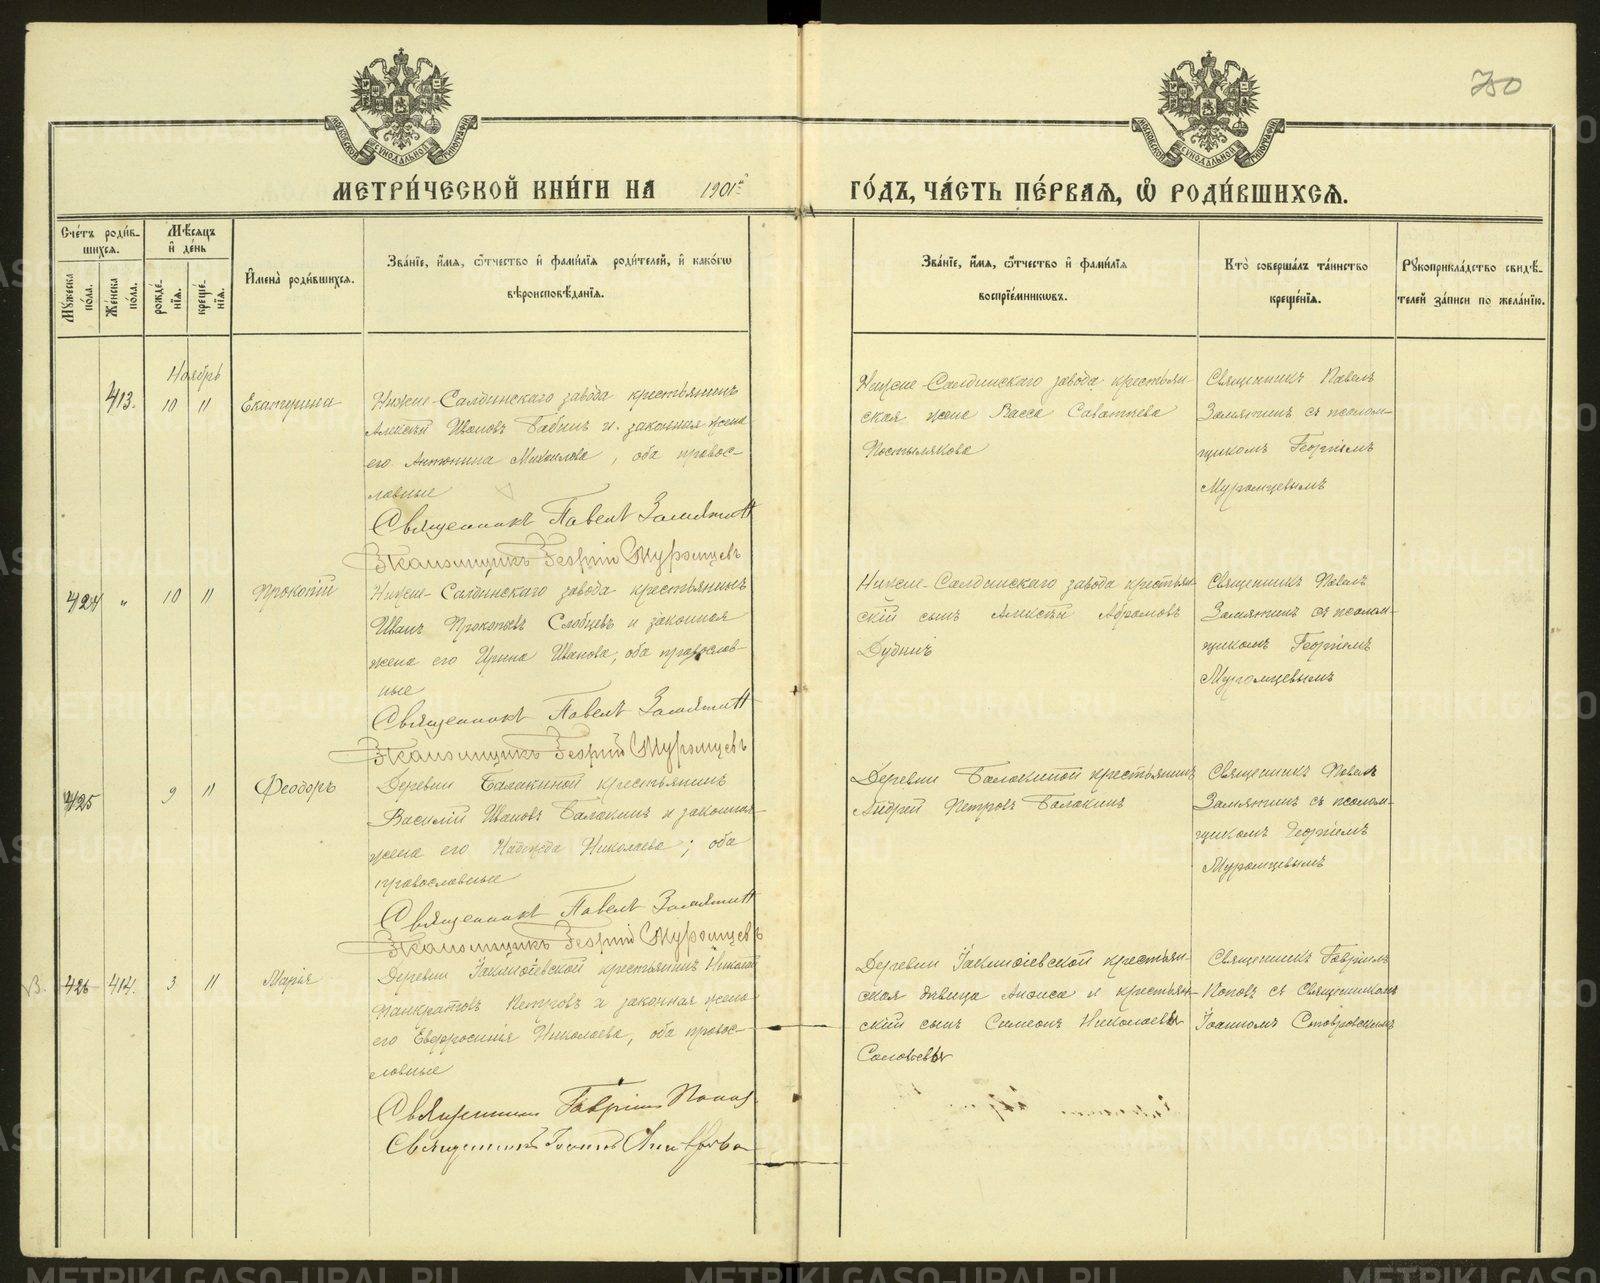 750
МЕТРИ́ЧЕСКОЙ КНИ́ГИ НА 1901й
ГО́ДЪ, ЧА́СТЬ ПЕ́РВАѦ, Ѡ҆ РОДИ́ВШИХСѦ.
Сче́тъ роди́в-
шихся.
Мѣ́сяцъ
и҆ де́нь
Мꙋжеска по́ла.
Же́нска по́ла.
рожде́-
нїя.
креще́-
нїя.
И҆мена̀ роди́вшихся.
Зва́нїе, и҆́мя, ѻ҆́тчество и҆ фами́лїя роди́телей, и҆ како́гѡ
вѣроисповѣ́данїя.
Зва́нїе, и҆́мя, ѻ҆́тчество и҆ фами́лїя
воспрїе́мникѡвъ.
Кто̀ соверша́лъ та́инство
креще́нїя.
Рꙋкоприкла́дство свидѣ́-
телей за́писи по жела́нїю.
Ноябрь
413. 10 11 Екатерина
Нижне-Салдинскаго завода крестьянинъ
Алексѣй Ивановъ Бабинъ и законная жена
его Антонина Михаилова, оба правос-
лавные
Священникъ Павелъ Замятинъ
Псаломщикъ Георгій Муромцевъ
Нижне-Салдинскаго завода крестьян-
ская жена Васса Саватіева
Постылякова
Священникъ Павелъ
Замятинъ съ псалом-
щикомъ Георгіемъ
Муромцевымъ
424 " 10 11 Прокопій
Нижне-Салдинскаго завода крестьянинъ
Иванъ Прокопьевъ Слобцевъ и законная
жена его Ирина Иванова, оба православ-
ные
Священникъ Павелъ Замятинъ
Псаломщикъ Георгій Муромцевъ
Нижне-Салдинскаго завода крестьян-
скій сынъ Алексѣй Абрамовъ
Дубнинъ
Священникъ Павелъ
Замятинъ съ псалом-
щикомъ Георгіемъ
Муромцевымъ
425 9 11 Феодоръ
Деревни Балакиной крестьянинъ
Василій Ивановъ Балакинъ и законная
жена его Надежда Николаева; оба
православные
Священникъ Павелъ Замятинъ
Псаломщикъ Георгій Муромцевъ
Деревни Балакиной крестьянинъ
Андрей Петровъ Балакинъ
Священникъ Павелъ
Замятинъ съ псалом-
щикомъ Георгіемъ
Муромцевымъ
426 414. 3 11 Марія
Деревни Іакинѳіевской крестьянинъ Николай
Панкратовъ Петровъ и законная жена
его Евфросинія Николаева, оба правос-
лавные
Священникъ Гавріилъ Поповъ
Священникъ Іоаннъ
Деревни Іакинѳіевской крестьян-
ская дѣвица Анфиса и крестьян-
скій сынъ Симеонъ Николаевы
Соловьевы
Священникъ Гавріилъ
Поповъ съ Священникомъ
Іоанномъ Ставровскимъ
METRIKI.GASO-URAL.RU